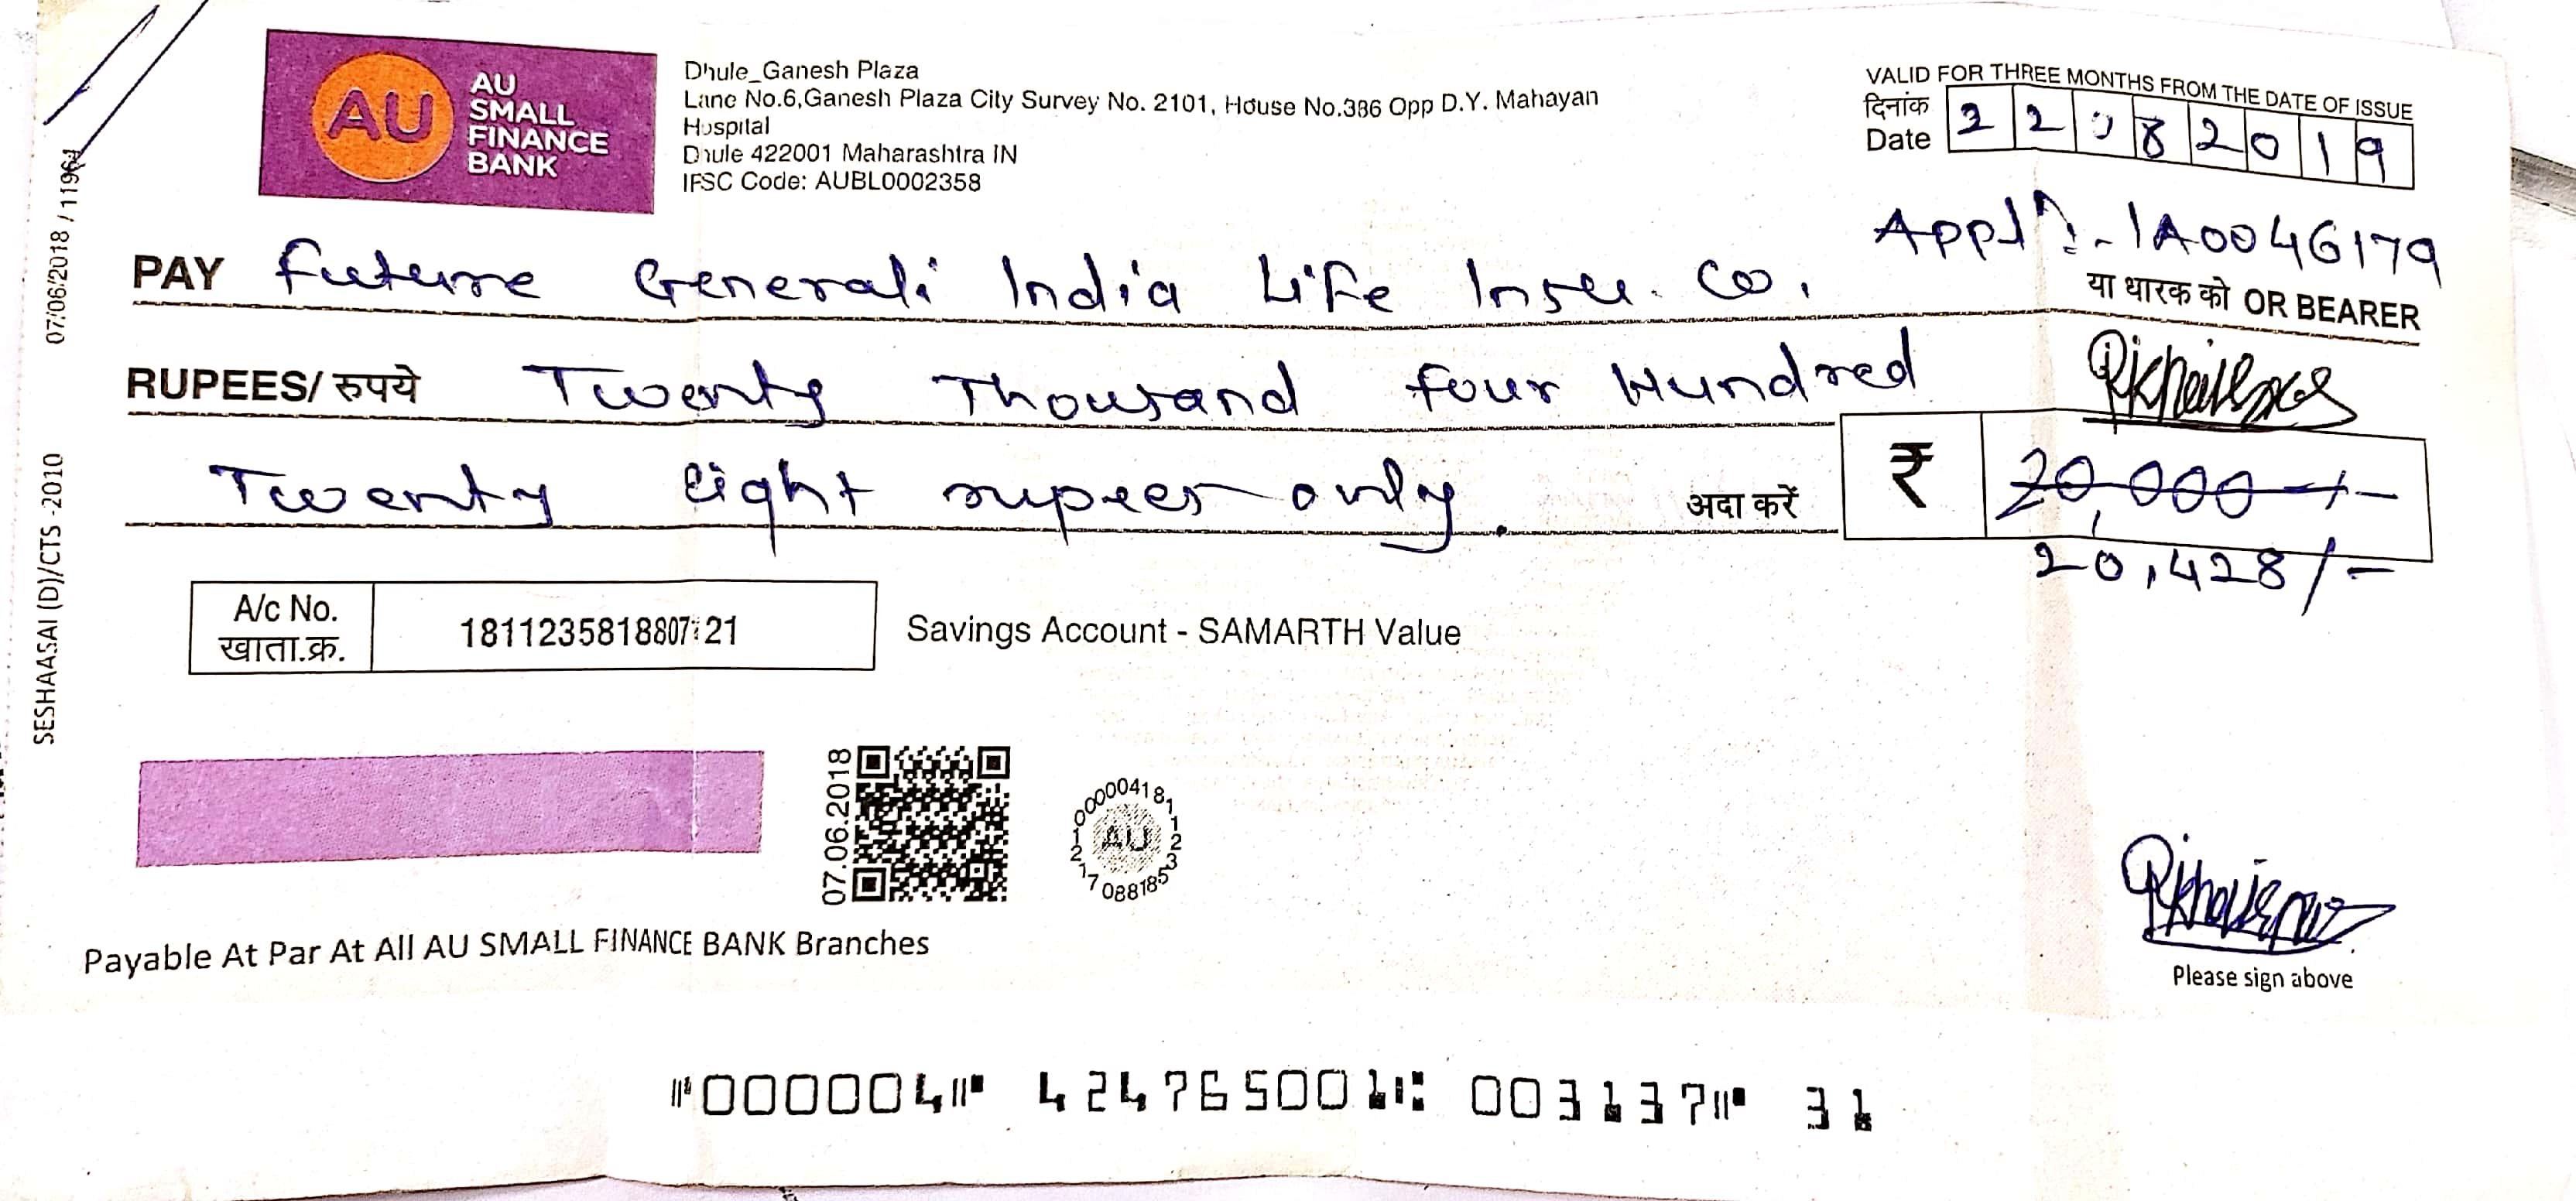 AU
AU
SMALL
FINANCE
BANK
Dhule_Ganesh Plaza
Lane No.6,Ganesh Plaza City Survey No. 2101, House No.386 Opp D.Y. Mahayan
Hospital
Dhule 422001 Maharashtra IN
IFSC Code: AUBL0002358
VALID FOR THREE MONTHS FROM THE DATE OF ISSUE
दिनांक
Date 22082019
1A0046179
PAY Future Generali India Life Insu. Co.
या धारक को OR BEARER
RUPEES/ रुपये Twenty Thousand Four Hundred
Twenty Eight rupees only.
अदा करें
₹ 20,000/-
20,428/-
A/c No.
खाता.क्र.
Savings Account - SAMARTH Value
07/06/2018 / 11961
SESHAASAI (D)/CTS -2010
07.06.2018
AU
Payable At Par At All AU SMALL FINANCE BANK Branches
Please sign above
000004 424765001 003137 31